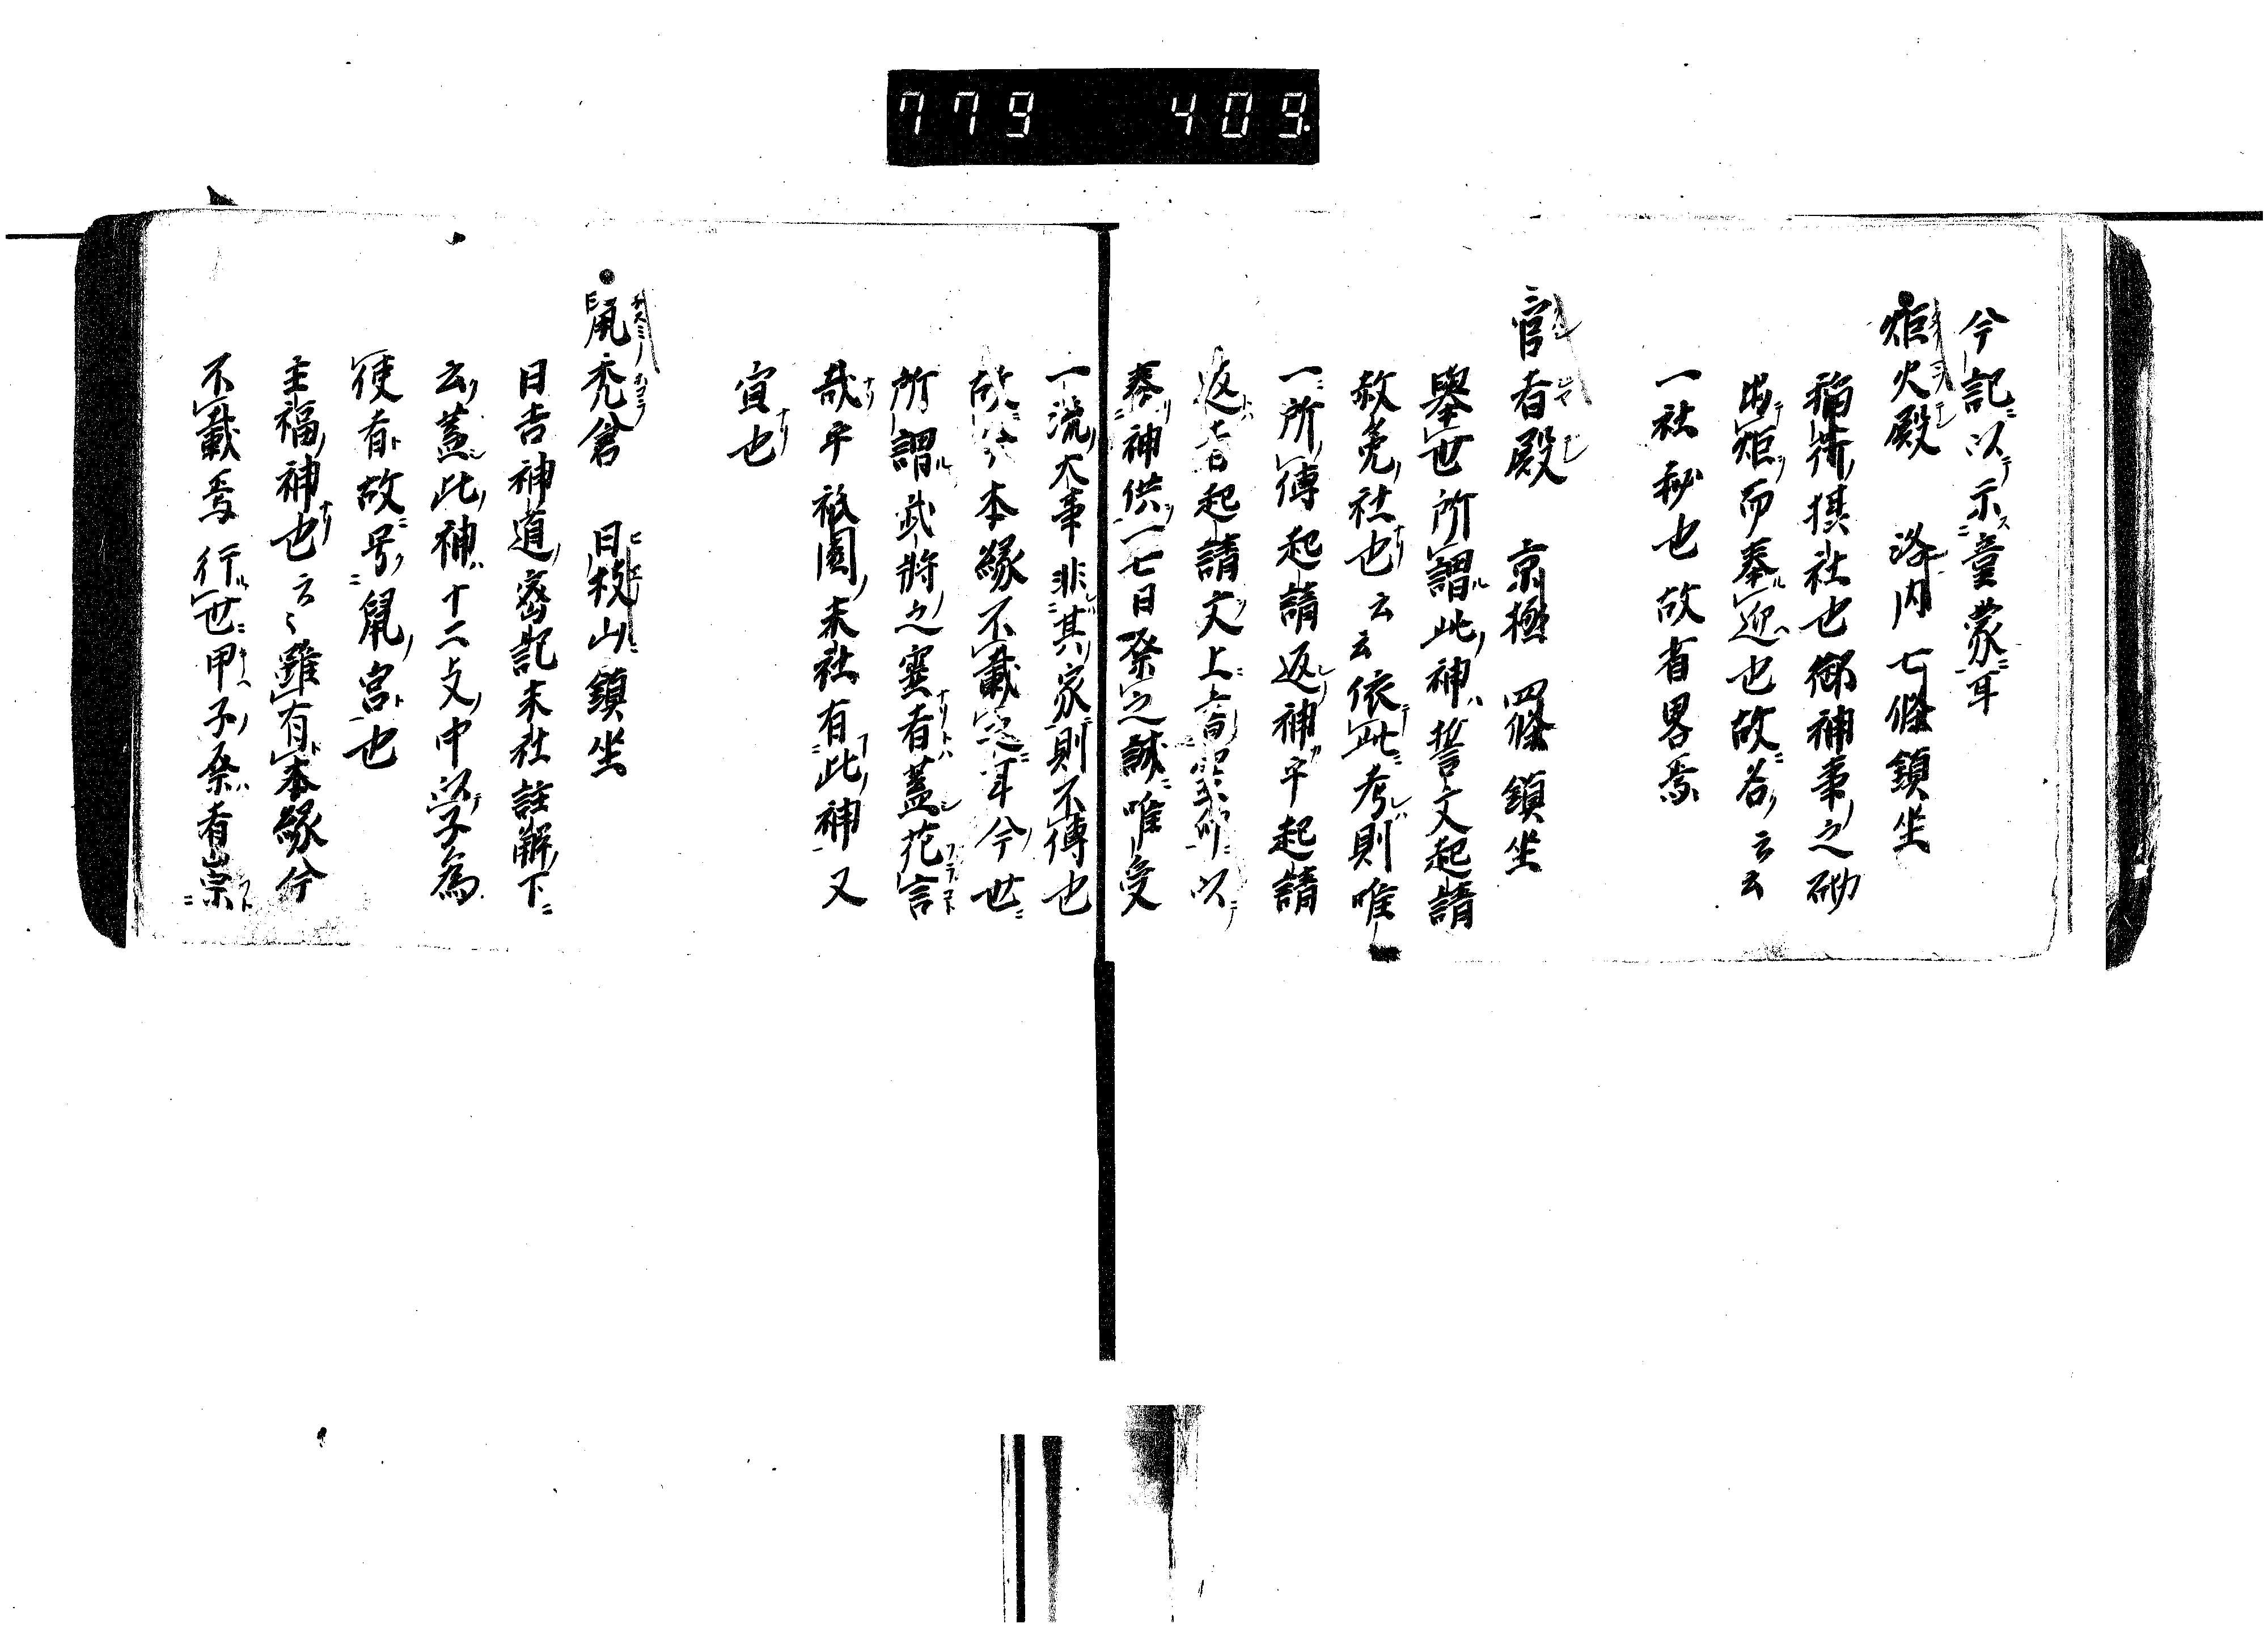 779 409
今記以示童蒙耳
炬火殿 洛内七條鎮坐
稲荷摂社也御神事之砌
出炬而奉迎也故名云云
一社秘也故省畧焉
官者殿 京極四條鎮坐
舉世所謂此神誓文起請
赦免社也云云依此考則唯
一所傳起請返神乎起請
返者起請文上 以
奉神供一七日祭之誠唯受
一流大事非其家則不傳也
故 本縁不載之耳今世
所謂武将之霊者蓋花言
哉乎祇園末社有此神又
宜也
鼠禿倉 日枝山鎮坐
日吉神道密記末社註解下
云蓋此神十二支中以子為
使者故号鼠宮也
主福神也云々雖有本縁今
不載焉行世甲子祭者崇